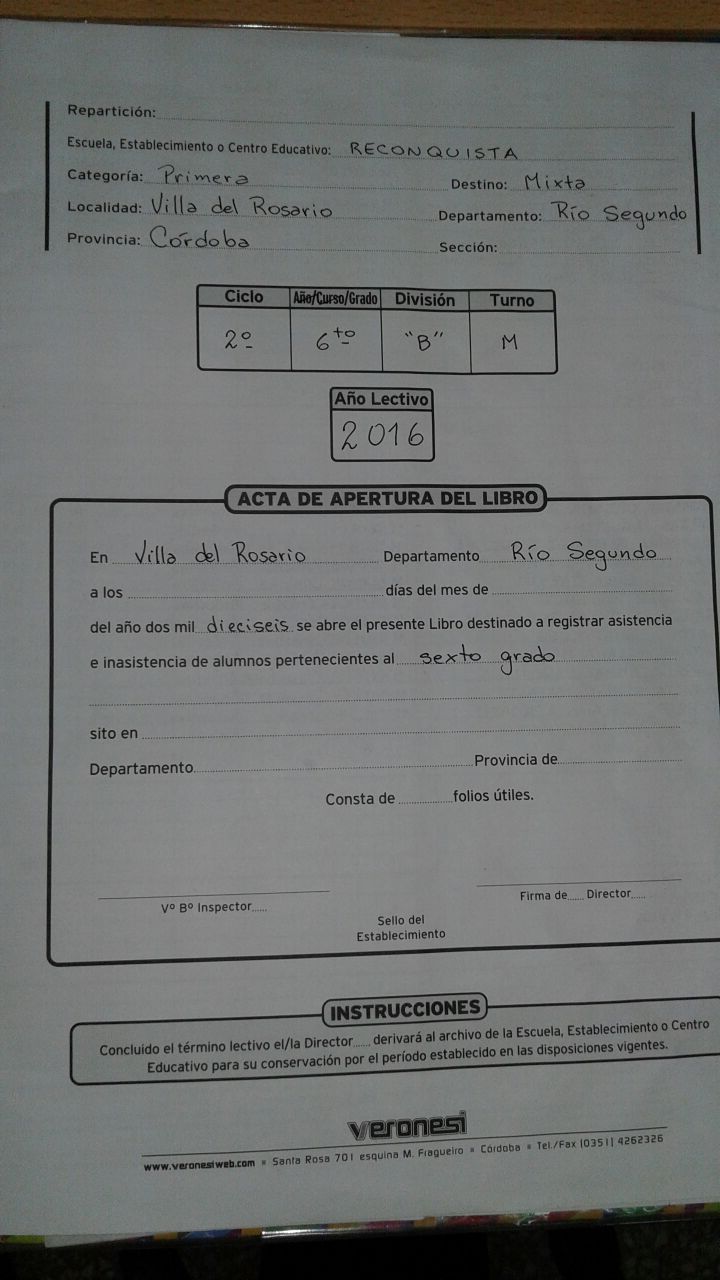 Repartición:
Escuela, Establecimiento o Centro Educativo: RECONQUISTA
Categoría: Primera Destino: Mixta
Localidad: Villa del Rosario Departamento: Río Segundo
Provincia: Córdoba Sección:
Ciclo Año/Curso/Grado División Turno
2º 6to "B" M
Año Lectivo
2016
ACTA DE APERTURA DEL LIBRO
En Villa del Rosario Departamento Río Segundo
a los días del mes de
del año dos mil dieciseis se abre el presente Libro destinado a registrar asistencia
e inasistencia de alumnos pertenecientes al sexto grado
sito en
Departamento Provincia de
Consta de folios útiles.
Vº Bº Inspector...... Firma de...... Director......
Sello del
Establecimiento
INSTRUCCIONES
Concluido el término lectivo el/la Director...... derivará al archivo de la Escuela, Establecimiento o Centro
Educativo para su conservación por el período establecido en las disposiciones vigentes.
veronesi
www.veronesiweb.com Santa Rosa 701 esquina M. Fragueiro Córdoba Tel./Fax (0351) 4262326